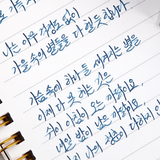 나는 아무 걱정도 없이
가을 속의 별들을 다 헬 듯합니다.
가슴 속에 하나 둘 새겨지는 별을
이제 다 못 헤는 것은
쉬이 아침이 오는 까닭이요,
내일 밤이 남은 까닭이요,
아직 나의 청춘이 다하지